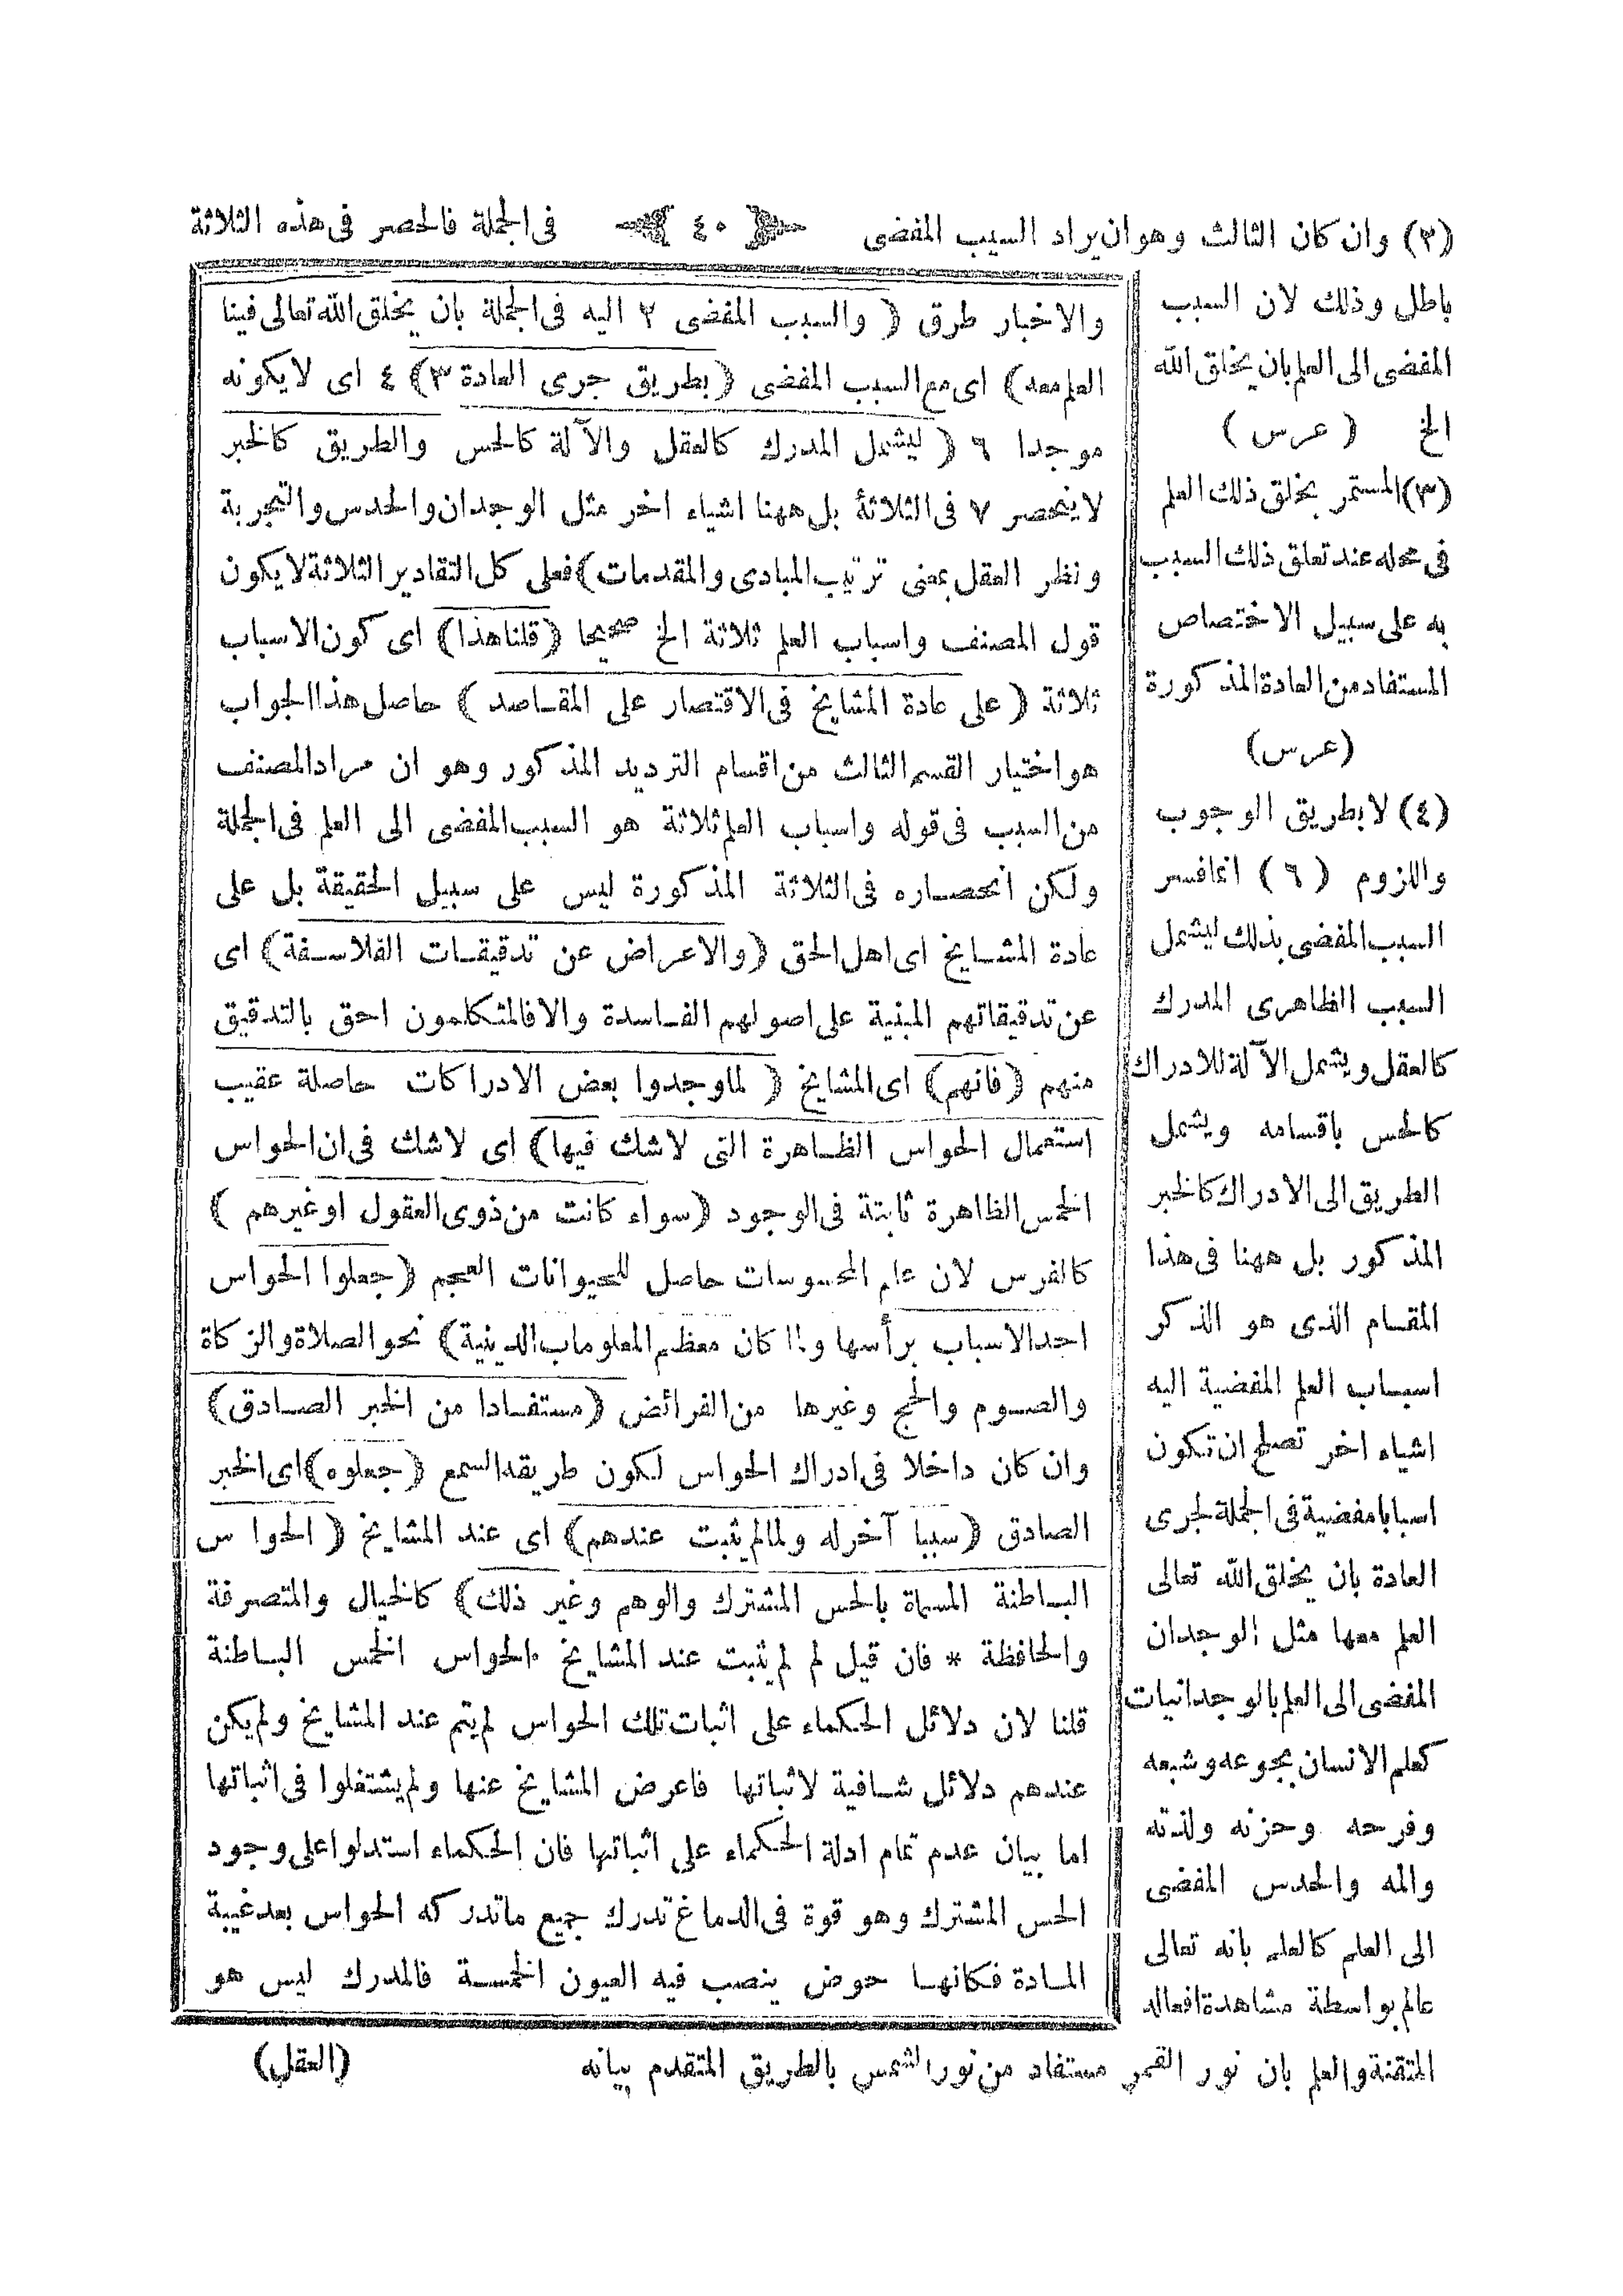 (٢) وان كان الثالث وهوان يراد السبب المفضى ٤٠ فى الجملة فالحصر فى هذه الثلاثة
والاخبار طرق ( والسبب المفضى ٢ اليه فى الجملة بان يخلق الله تعالى فينا
العلم معه) اى مع السبب المفضى (بطريق جرى العادة ٣) ٤ اى لا يكونه
موجدا ٦ ( ليشمل المدرك كالعقل والآلة كالحس والطريق كالخبر
لا ينحصر ٧ فى الثلاثة بل ههنا اشياء اخر مثل الوجدان والحدس والتجربة
ونظر العقل بمعنى ترتيب المبادى والمقدمات) فعلى كل التقادير الثلاثة لا يكون
قول المصنف واسباب العلم ثلاثة الخ صحيحا (قلنا هذا) اى كون الاسباب
ثلاثة ( على عادة المشايخ فى الاقتصار على المقاصد ) حاصل هذا الجواب
هو اختيار القسم الثالث من اقسام الترديد المذكور وهو ان مراد المصنف
من السبب فى قوله واسباب العلم ثلاثة هو السبب المفضى الى العلم فى الجملة
ولكن انحصاره فى الثلاثة المذكورة ليس على سبيل الحقيقة بل على
عادة المشايخ اى اهل الحق (والاعراض عن تدقيقات الفلاسفة) اى
عن تدقيقاتهم المبنية على اصولهم الفاسدة والا فالمتكلمون احق بالتدقيق
منهم (فانهم) اى المشايخ ( لما وجدوا بعض الادراكات حاصلة عقيب
استعمال الحواس الظاهرة التى لا شك فيها) اى لا شك فى ان الحواس
الخمس الظاهرة ثابتة فى الوجود (سواء كانت من ذوى العقول او غيرهم )
كالفرس لان علم المحسوسات حاصل للحيوانات العجم (جعلوا الحواس
احد الاسباب برأسها ولما كان معظم المعلومات الدينية) نحو الصلاة والزكاة
والصوم والحج وغيرها من الفرائض (مستفادا من الخبر الصادق)
وان كان داخلا فى ادراك الحواس لكون طريقه السمع (جعلوه) اى الخبر
الصادق (سببا آخر له ولما لم يثبت عندهم) اى عند المشايخ ( الحواس
الباطنة المسماة بالحس المشترك والوهم وغير ذلك) كالخيال والمتصرفة
والحافظة * فان قيل لم لم يثبت عند المشايخ الحواس الخمس الباطنة
قلنا لان دلائل الحكماء على اثبات تلك الحواس لم يتم عند المشايخ ولم يكن
عندهم دلائل شافية لاثباتها فاعرض المشايخ عنها ولم يشتغلوا فى اثباتها
اما بيان عدم تمام ادلة الحكماء على اثباتها فان الحكماء استدلوا على وجود
الحس المشترك وهو قوة فى الدماغ تدرك جميع ما تدركه الحواس بعد غيبة
المادة فكانها حوض ينصب فيه العيون الخمسة فالمدرك ليس هو
(العقل)
باطل وذلك لان السبب
المفضى الى العلم بان يخلق الله
الخ ( عرس )
(٣) المستمر بخلق ذلك العلم
فى محله عند تعلق ذلك السبب
به على سبيل الاختصاص
المستفاد من العادة المذكورة
(عرس)
(٤) لا بطريق الوجوب
واللزوم (٦) انما فسر
السبب المفضى بذلك ليشمل
السبب الظاهرى المدرك
كالعقل ويشمل الآلة للادراك
كالحس باقسامه ويشمل
الطريق الى الادراك كالخبر
المذكور بل ههنا فى هذا
المقام الذى هو الذكر
اسباب العلم المفضية اليه
اشياء اخر تصلح ان تكون
اسبابا مفضية فى الجملة لجرى
العادة بان يخلق الله تعالى
العلم معها مثل الوجدان
المفضى الى العلم بالوجدانيات
كعلم الانسان بجوعه وشبعه
وفرحه وحزنه ولذته
والمه والحدس المفضى
الى العلم كالعلم بانه تعالى
عالم بواسطة مشاهدة افعاله
المتقنة والعلم بان نور القمر مستفاد من نور الشمس بالطريق المتقدم بيانه